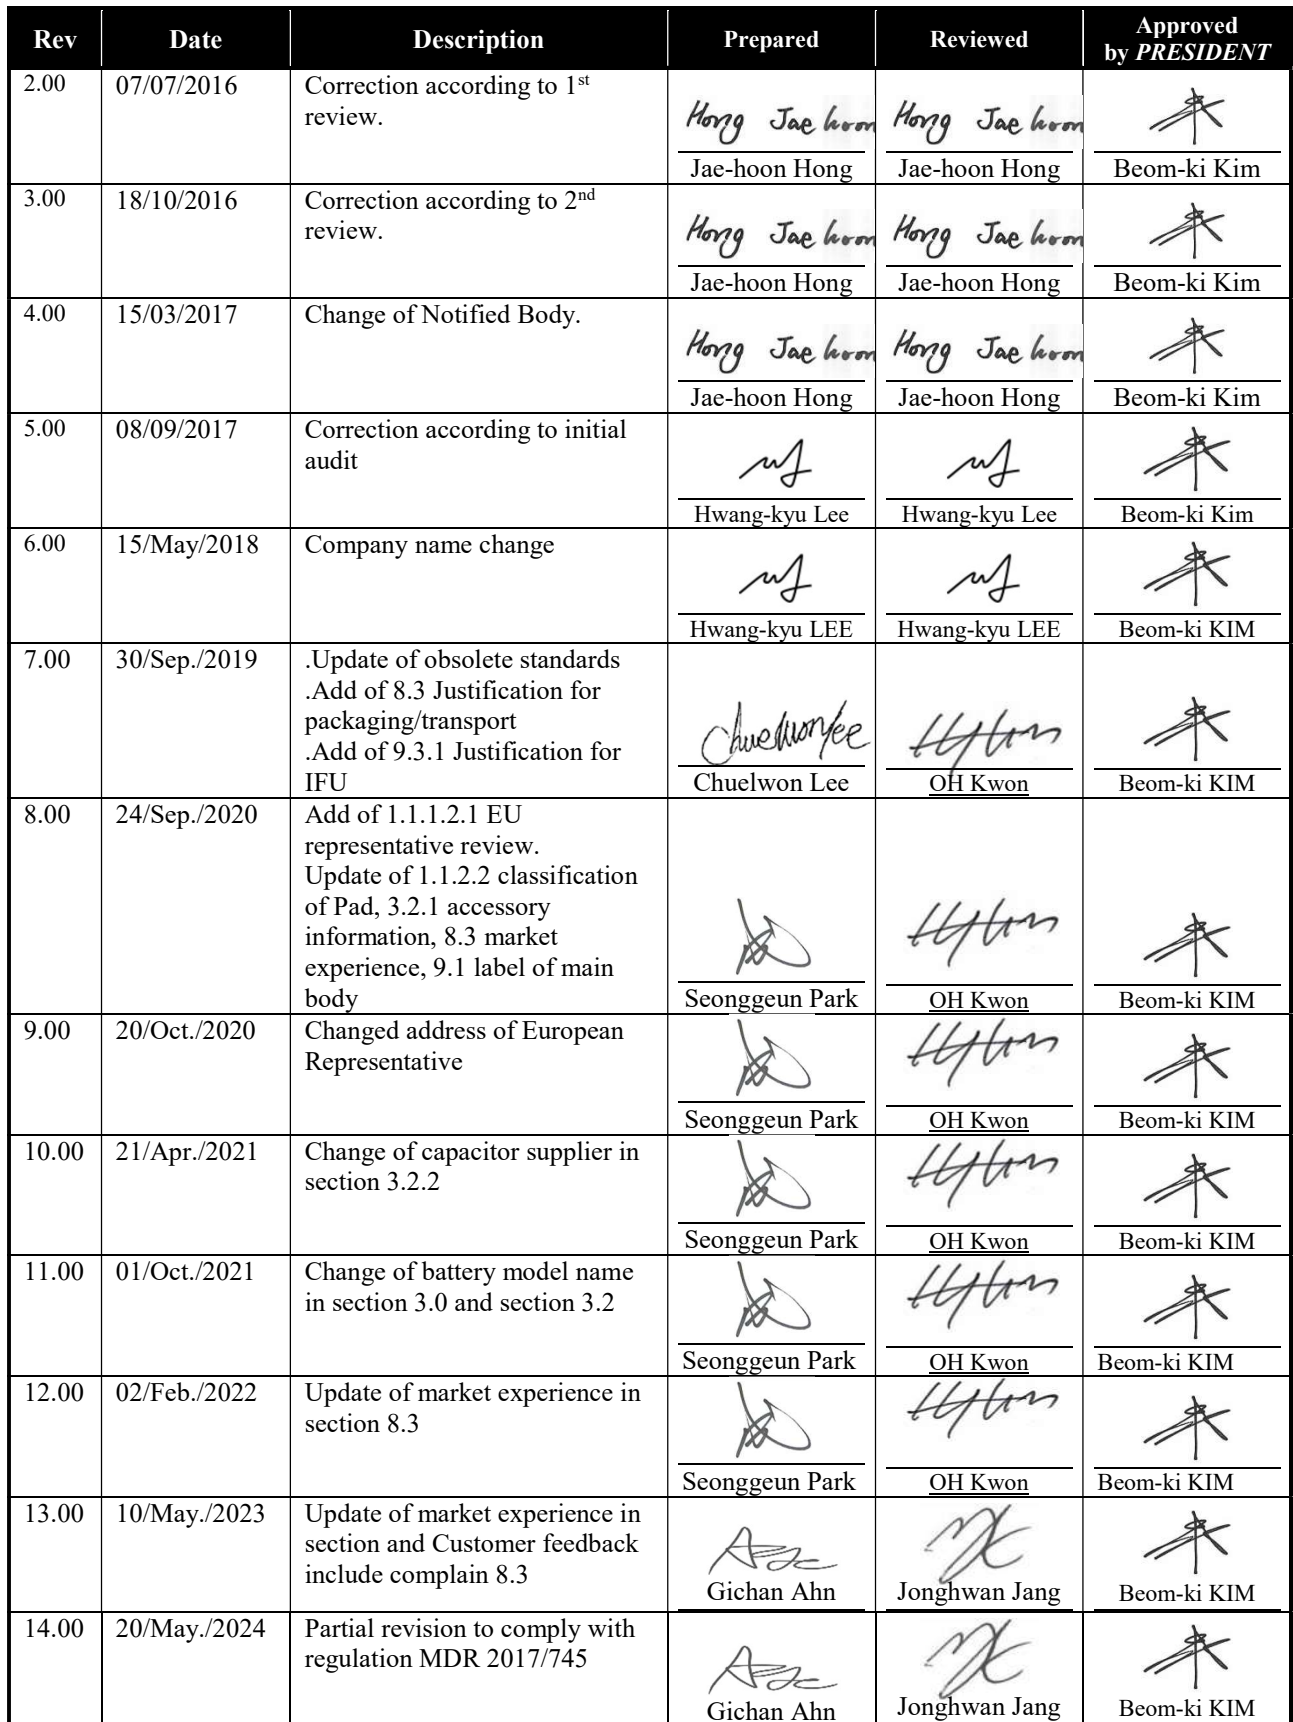 Rev Date Description Prepared Reviewed Approved
by PRESIDENT
2.00 07/07/2016 Correction according to 1st
review.
Hong Jae hoon Hong Jae hoon
Jae-hoon Hong Jae-hoon Hong Beom-ki Kim
3.00 18/10/2016 Correction according to 2nd
review.
Hong Jae hoon Hong Jae hoon
Jae-hoon Hong Jae-hoon Hong Beom-ki Kim
4.00 15/03/2017 Change of Notified Body.
Hong Jae hoon Hong Jae hoon
Jae-hoon Hong Jae-hoon Hong Beom-ki Kim
5.00 08/09/2017 Correction according to initial
audit
Hwang-kyu Lee Hwang-kyu Lee Beom-ki Kim
6.00 15/May/2018 Company name change
Hwang-kyu LEE Hwang-kyu LEE Beom-ki KIM
7.00 30/Sep./2019 .Update of obsolete standards
.Add of 8.3 Justification for
packaging/transport
.Add of 9.3.1 Justification for
IFU
Chuelwon lee
Chuelwon Lee OH Kwon Beom-ki KIM
8.00 24/Sep./2020 Add of 1.1.1.2.1 EU
representative review.
Update of 1.1.2.2 classification
of Pad, 3.2.1 accessory
information, 8.3 market
experience, 9.1 label of main
body
Seonggeun Park OH Kwon Beom-ki KIM
9.00 20/Oct./2020 Changed address of European
Representative
Seonggeun Park OH Kwon Beom-ki KIM
10.00 21/Apr./2021 Change of capacitor supplier in
section 3.2.2
Seonggeun Park OH Kwon Beom-ki KIM
11.00 01/Oct./2021 Change of battery model name
in section 3.0 and section 3.2
Seonggeun Park OH Kwon Beom-ki KIM
12.00 02/Feb./2022 Update of market experience in
section 8.3
Seonggeun Park OH Kwon Beom-ki KIM
13.00 10/May./2023 Update of market experience in
section and Customer feedback
include complain 8.3
Gichan Ahn Jonghwan Jang Beom-ki KIM
14.00 20/May./2024 Partial revision to comply with
regulation MDR 2017/745
Gichan Ahn Jonghwan Jang Beom-ki KIM